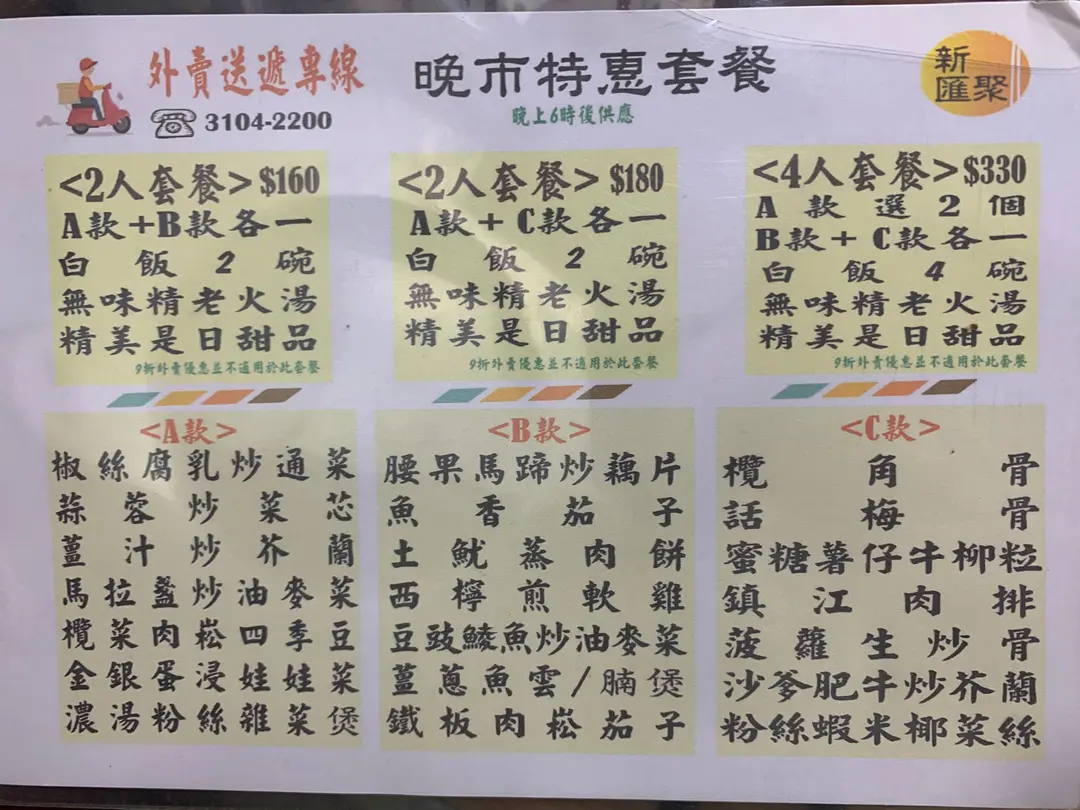 外賣送遞專線
3104-2200
晚市特惠套餐
晚上6時後供應
新
匯聚
<2人套餐>$160
A款+B款各一
白飯2碗
無味精老火湯
精美是日甜品
9折外賣優惠並不適用於此套餐
<2人套餐>$180
A款+C款各一
白飯2碗
無味精老火湯
精美是日甜品
9折外賣優惠並不適用於此套餐
<4人套餐>$330
A款選2個
B款+C款各一
白飯4碗
無味精老火湯
精美是日甜品
9折外賣優惠並不適用於此套餐
<A款>
椒絲腐乳炒通菜
蒜蓉炒菜芯
薑汁炒芥蘭
馬拉盞炒油麥菜
欖菜肉崧四季豆
金銀蛋浸娃娃菜
濃湯粉絲雜菜煲
<B款>
腰果馬蹄炒藕片
魚香茄子
土魷蒸肉餅
西檸煎軟雞
豆豉鯪魚炒油麥菜
薑蔥魚雲/腩煲
鐵板肉崧茄子
<C款>
欖角骨
話梅骨
蜜糖薯仔牛柳粒
鎮江肉排
菠蘿生炒骨
沙爹肥牛炒芥蘭
粉絲蝦米椰菜絲